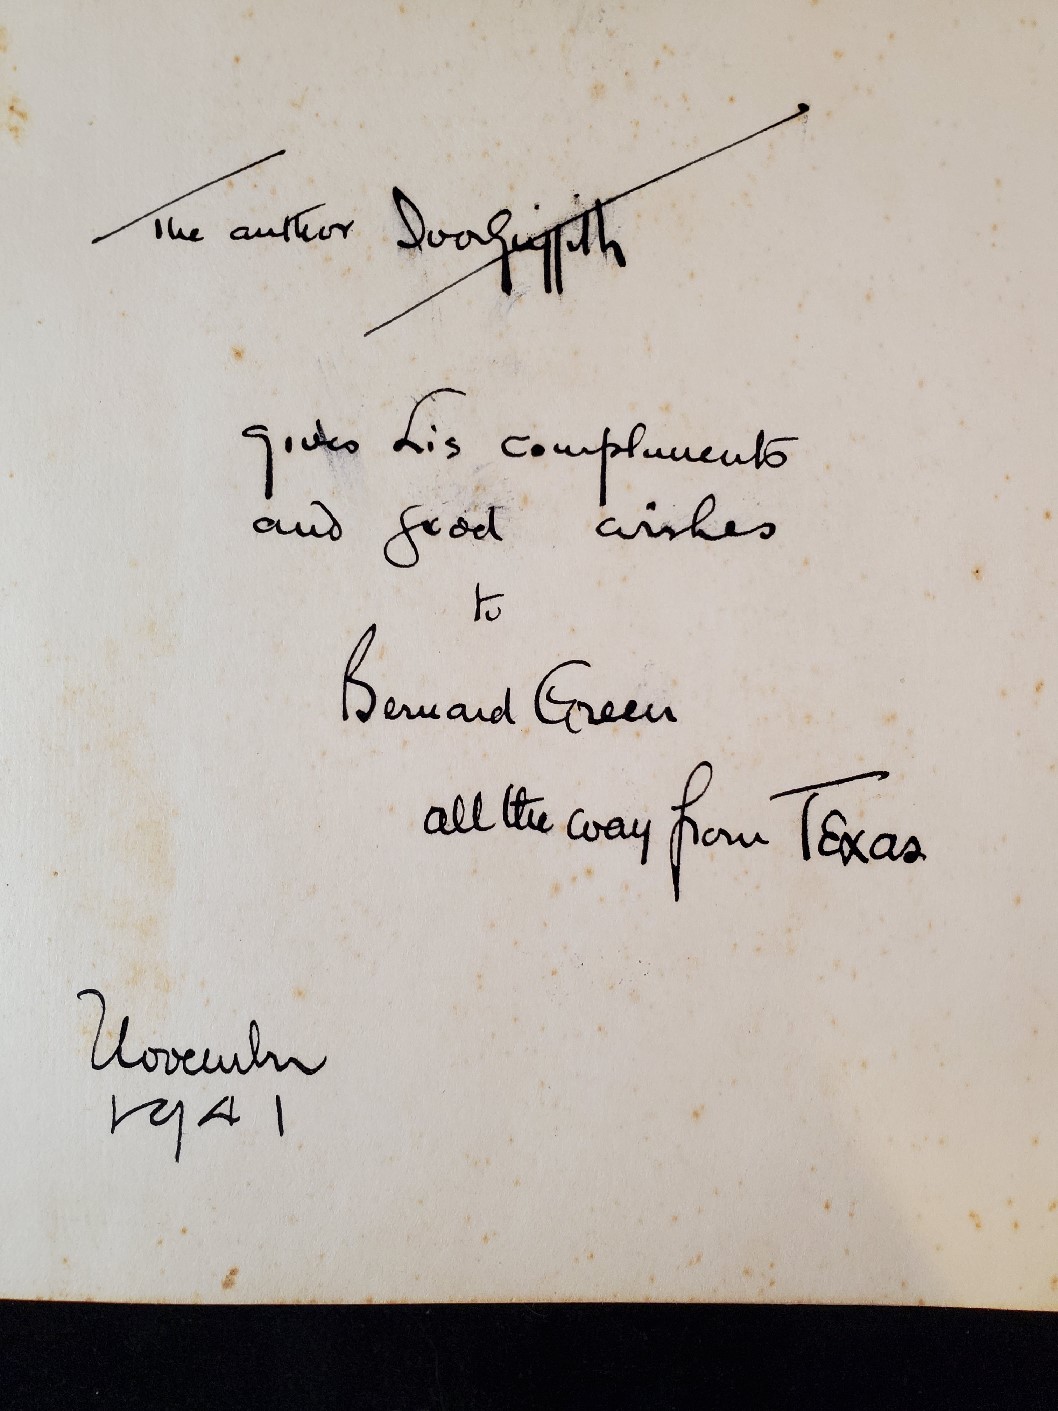 The author Ivor Griffith
gives his compliments
and good wishes
to
Bernard Green
all the way from Texas
November
1941